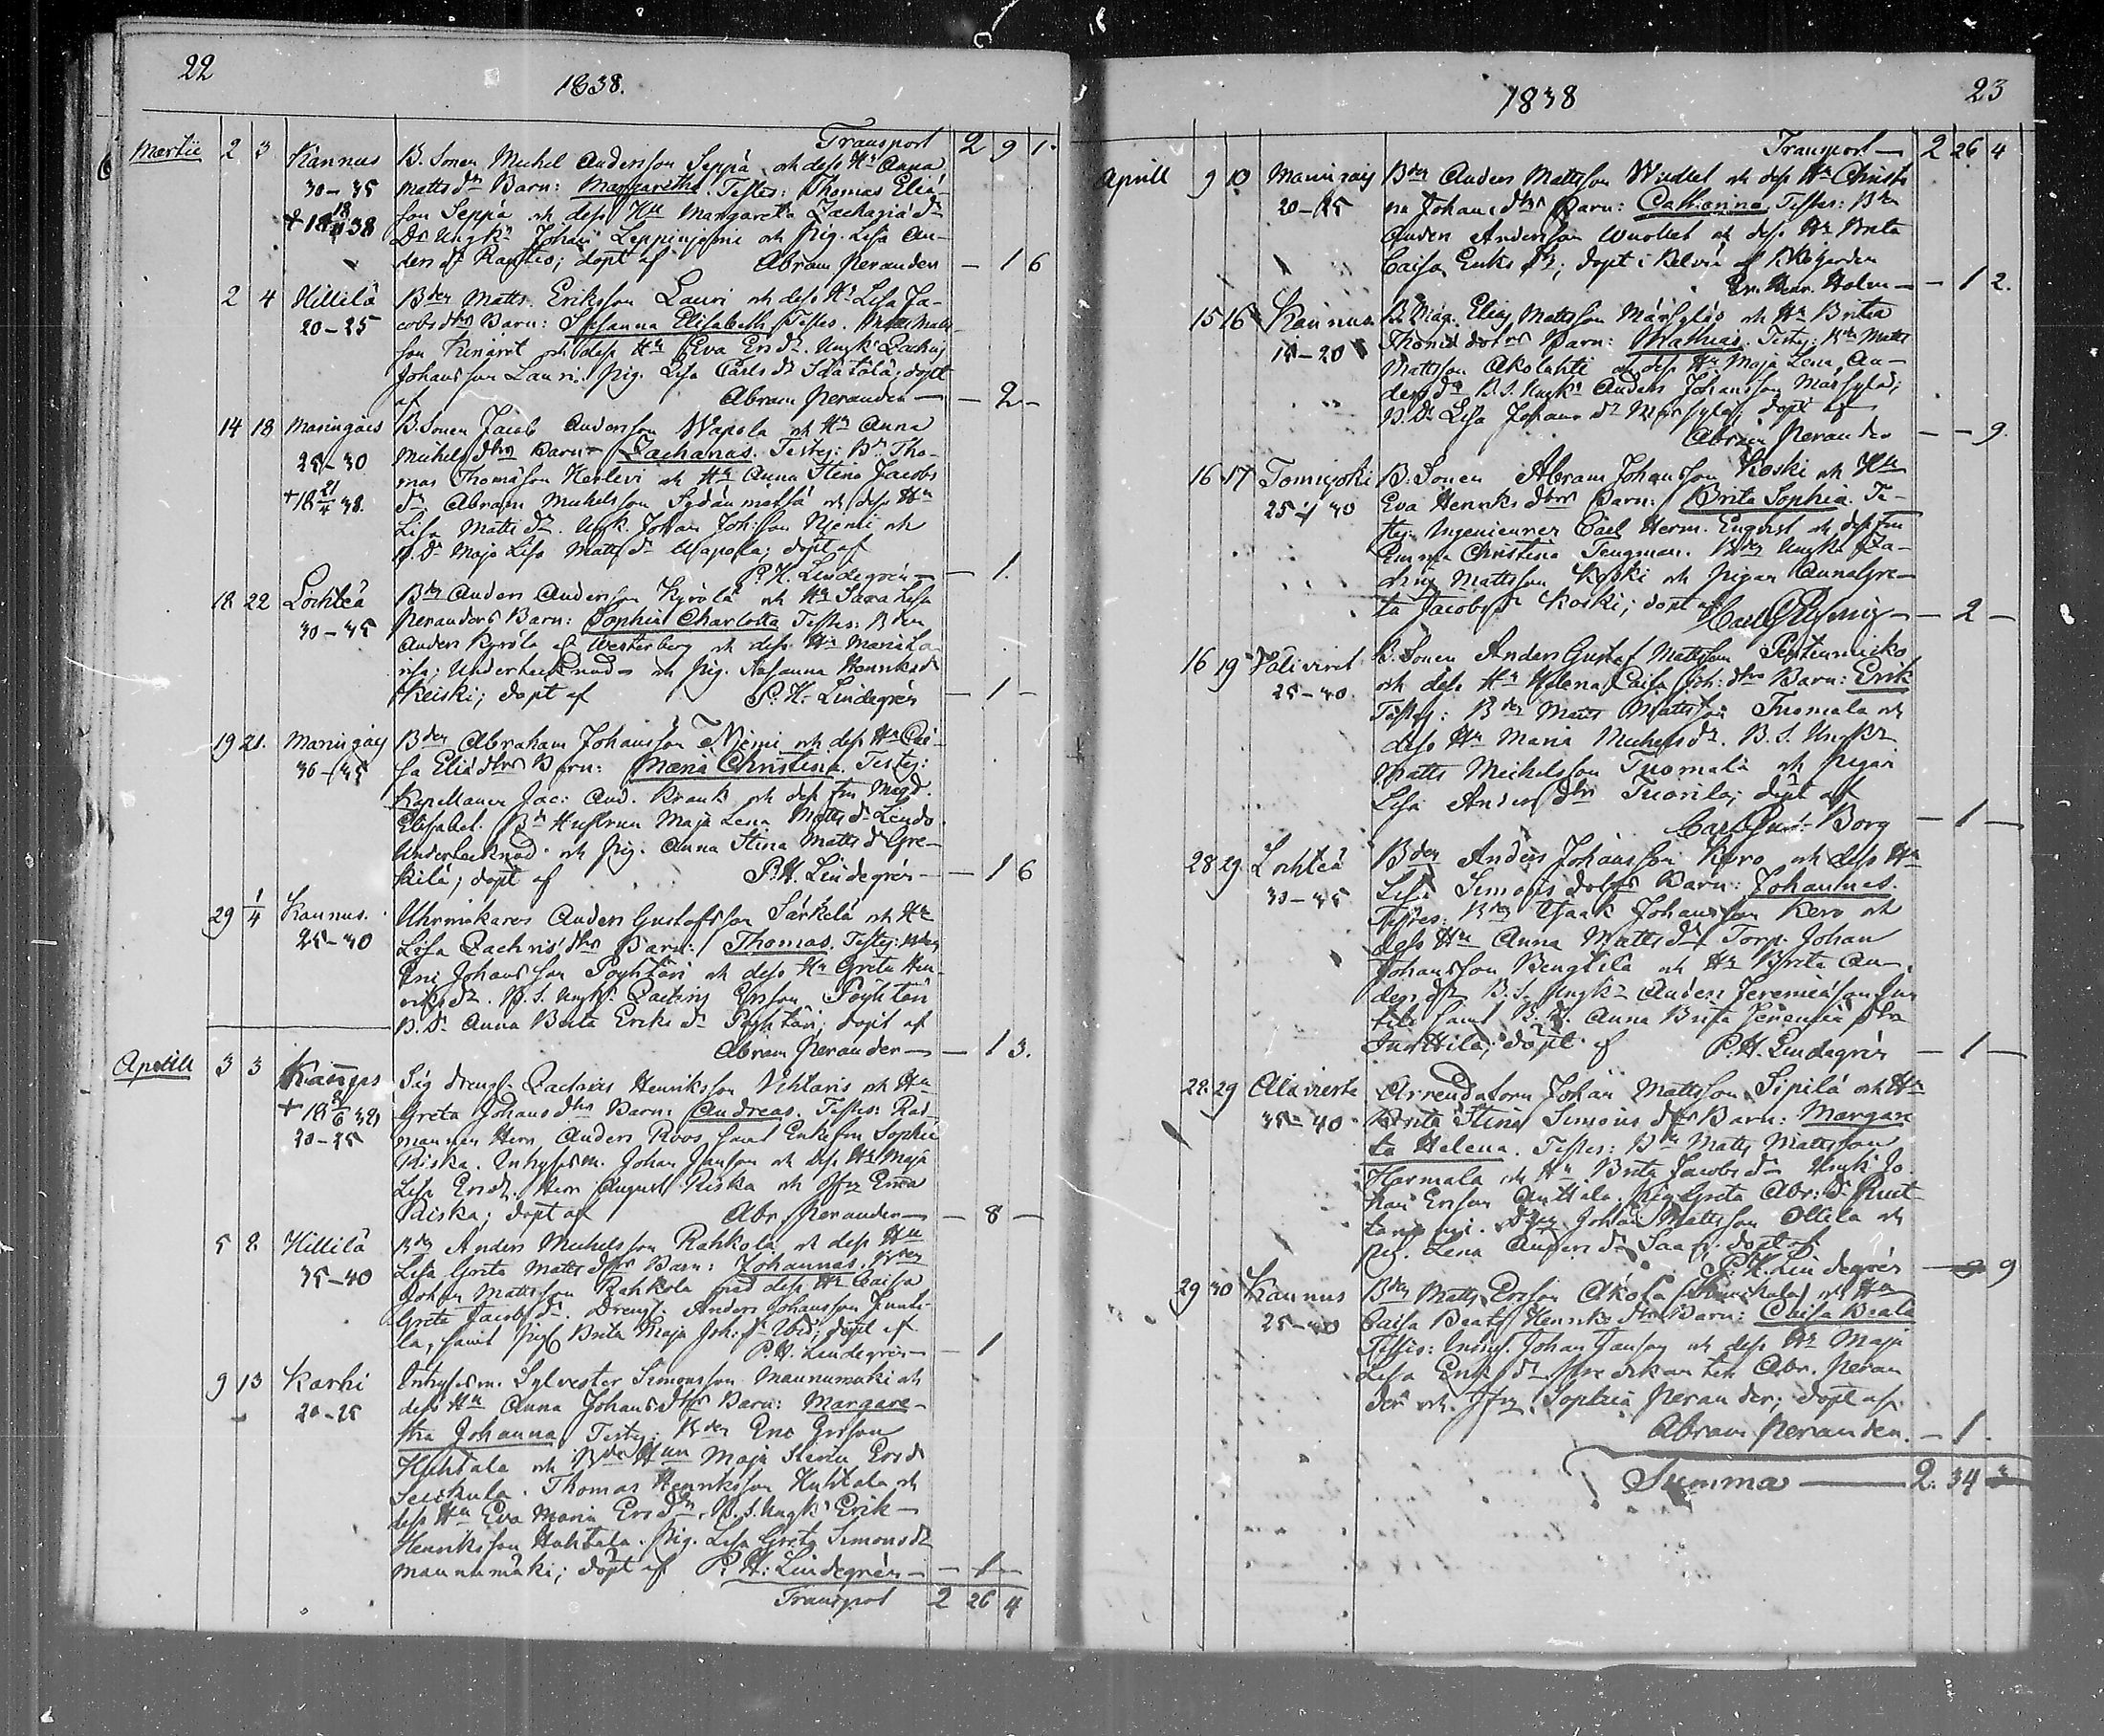 22
1838.
Transport 2 9 1.
Martii 2 3 Kannus B. Sonen Michel Andersson Seppä och dess Hu Anna
30-35 Matts dr Barn: Margaretha Testes: Thomas Eliä
+ 18 18/11 38 son Seppä och dess Hu Margareta Zachariä dr
Dr Ungkn Johan Leppinjemi och Pig. Lisa An-
ders dr Rautio; döpt af Abram Perander — 1 6
2 4 Hillilä Bden Matts Eriksson Lauri och dess Hu Lisa Ja-
20-25 cobs dtrs Barn: Susanna Elisabeth Testes. Matts Matts
son och dess Hu Eva Ers dr. Ungk: Zachris
Johansson Lauri. Pig. Lisa Carls dr döpt
af Abram Perander — 2 —
14 18 Maringais B. Sonen Jacob Andersson Wapola och Hu Anna
25-30 Michels dtrs Barn Zacharias. Testes: Bn Tho-
mas Thomasson Herlevi och Hu Anna Stina Jacobs
+ 18 21/4 38. dr Abram Michelsson Sydänmetsä och dess Hu
Lisa Matts dr. Ungk. Johan Joh:son Njemi och
B. Dr Maja Lisa Matts dr Wapola; döpt af
P. H. Lindegrén — 1.
18 22 Lochteå Bden Anders Andersson Kyrölä och Hu Sara Lisa
30-35 Peranders Barn: Sophia Charlotta Testes: Bden
Anders Kyrölä Westerberg och dess Hu Maria Lo
visa; Undertecknad och Pig. Susanna Henriks dr
Keiski; döpt af P. H. Lindegrén — 1 —
19 21. Maringais Bden Abraham Johansson Niemi och dess Hu Cai-
30-35 sa Eliä dtrs Barn: Maria Christina. Testes:
Kapellanen Jac: And. Krank och dess fru Magd.
Elisabet. Bde Hustrun Maja Lena Matts dr
Undertecknad och Pig. Anna Stina Matts dr Gre-
kilä; döpt af P. H. Lindegrén — 1 6
29 1/4 Kannus. Uhrmakaren Anders Gustafsson Särkelä och Hu
25-30 Lisa Zachris dtrs Barn: Thomas. Testes: Bden
Eric Johansson Pöyhtäri och dess Hu Greta Hen-
riks dr. B. S. Ungk: Zachris Ersson Pöyhtäri
B. Dr Anna Brita Eriks dr Pöyhtäri; döpt af
Abram Perander — 1 3.
Aprill 3 3 Kannus drengs. Zachris Henriksson Vihtaris och Hu
+ 18 8/6 38 Greta Johans dtrs Barn: Andreas. Testes: Råd
20-25 mannen Herr Anders Roos samt Enkefru Sophia
Riska. Inhyses m. Johan Janson och dess Hu Maja
Lisa Ers dr. Herr August Riska och Jfru Emma
Riska; döpt af Abr. Perander — 8 —
5 8 Hillilä Bden Anders Michelsson Rahkola och dess Hu
35-40 Lisa Greta Matts dtrs Barn: Johannes. Bden
Johan Mattsson Rahkola med dess Hu Caisa
Greta Jacobs dr. Drengs. Anders Johansson Junti-
la, samt Pig. Brita Maja Joh: dr ibid; döpt af
P. H. Lindegrén — 1
9 13 Karhi Inhyses m. Sylvester Simonsson Maunumäki och
20-25 dess Hu Anna Johans dtrs Barn: Margare-
tha Johanna. Testes: Bden Eric Ersson
Huhtala och Bde Hun Maja Stina Ers dr
Thomas Henriksson Huhtala och
dess Hu Eva Maria Ers dr. B. S. Ungk: Erik
Henriksson Huhtala. Pig. Lisa Greta Simons dr
Maunumäki; döpt af P. H. Lindegrén — 1 —
Transport 2 26 4
1838
23
Transport — 2 26 4
Aprill 9 10 Maringais Bden Anders Mattsson Wuollet och dess Hu Christi
20-25 na Johans dtrs Barn: Catharina. Testes: Bden
Anders Andersson Wuollet och dess Hu Brita
Caisa Eriks dr; döpt i Kelviå af
Holm — 1 2.
15 16 Kannus B. Måg. Elias Mattsson Märsylä och Hu Britha
15-20 Thomæ dotrs Barn: Mathias. Testes: Bde Matts
Mattsson Akolahti och dess Hu Maja Lena An-
ders dr B. S. Ungk: Anders Johansson Märsylä;
B. Dr Lisa Johans dr Märsylä, döpt af
Abram Perander — — 9.
16 17 Tomujoki B. Sonen Abram Johansson Koski och Hu
25-30 Eva Henriks dtrs Barn: Brita Sophia. Te-
stes: Ingenieuren Carl Herm. Enqvist och dess fru
Emma Christina Tengman. Bden Ungk: Za-
chris Mattsson Koski och Pigan Anna Gre-
ta Jacobs dr Koski; döpt af — 2 —
16 19 Yliviret B. Sonen Anders Gustaf Mattsson
25-30. och dess Hu Helena Caisa Joh: dtrs Barn: Erik
Testes: Bden Matts Mattsson Tuomala och
dess Hu Maria Michels dr. B. S. Ungkn
Matts Michelsson Tuomala och Pigan
Lisa Anders dtr Tuorila; döpt af
Carl Gust. Borg — 1 —
28 29. Lochteå Bden Anders Johansson Kero och dess Hu
30-35 Lisa Simons dotrs Barn: Johannes.
Testes: Bden Isaak Johansson Kero och
dess Hu Anna Matts dr. Torp. Johan
Johansson Bengtilä och Hu Brita An-
ders dr. B. S. Ungkn Anders Jeremiäson Jun
tila samt B. D. Anna Brita Jeremiä dtr
Junttila; döpt af P. H. Lindegrén — 1 —
28 29 Alavieska Arrendatorn Johan Mattsson Sipilä och Hu
35-40 Brita Stina Simons dtrs Barn: Margare
ta Helena. Testes: Bn Matts Mattsson
Harmala och Hu Brita Jacobs dr Ungk: Jo-
han Ersson Anttila. Pig. Greta Abr: dr
Johan Mattsson Ollila och
Pig. Lena Anders dr Saari. döpt af
P. H. Lindegrén — 9
29 30 Kannus Bden Matts Ersson Akola och Hu
25-30 Caisa Beata Henriks dtrs Barn: Caisa Beata
Testes: Inhys. Johan Janson och dess Hu Maja
Lisa Eriks dr. Predikanten Abr. Peran
der och Jfru Sophia Perander; döpt af
Abram Perander. — 1.
Summa — 2. 34